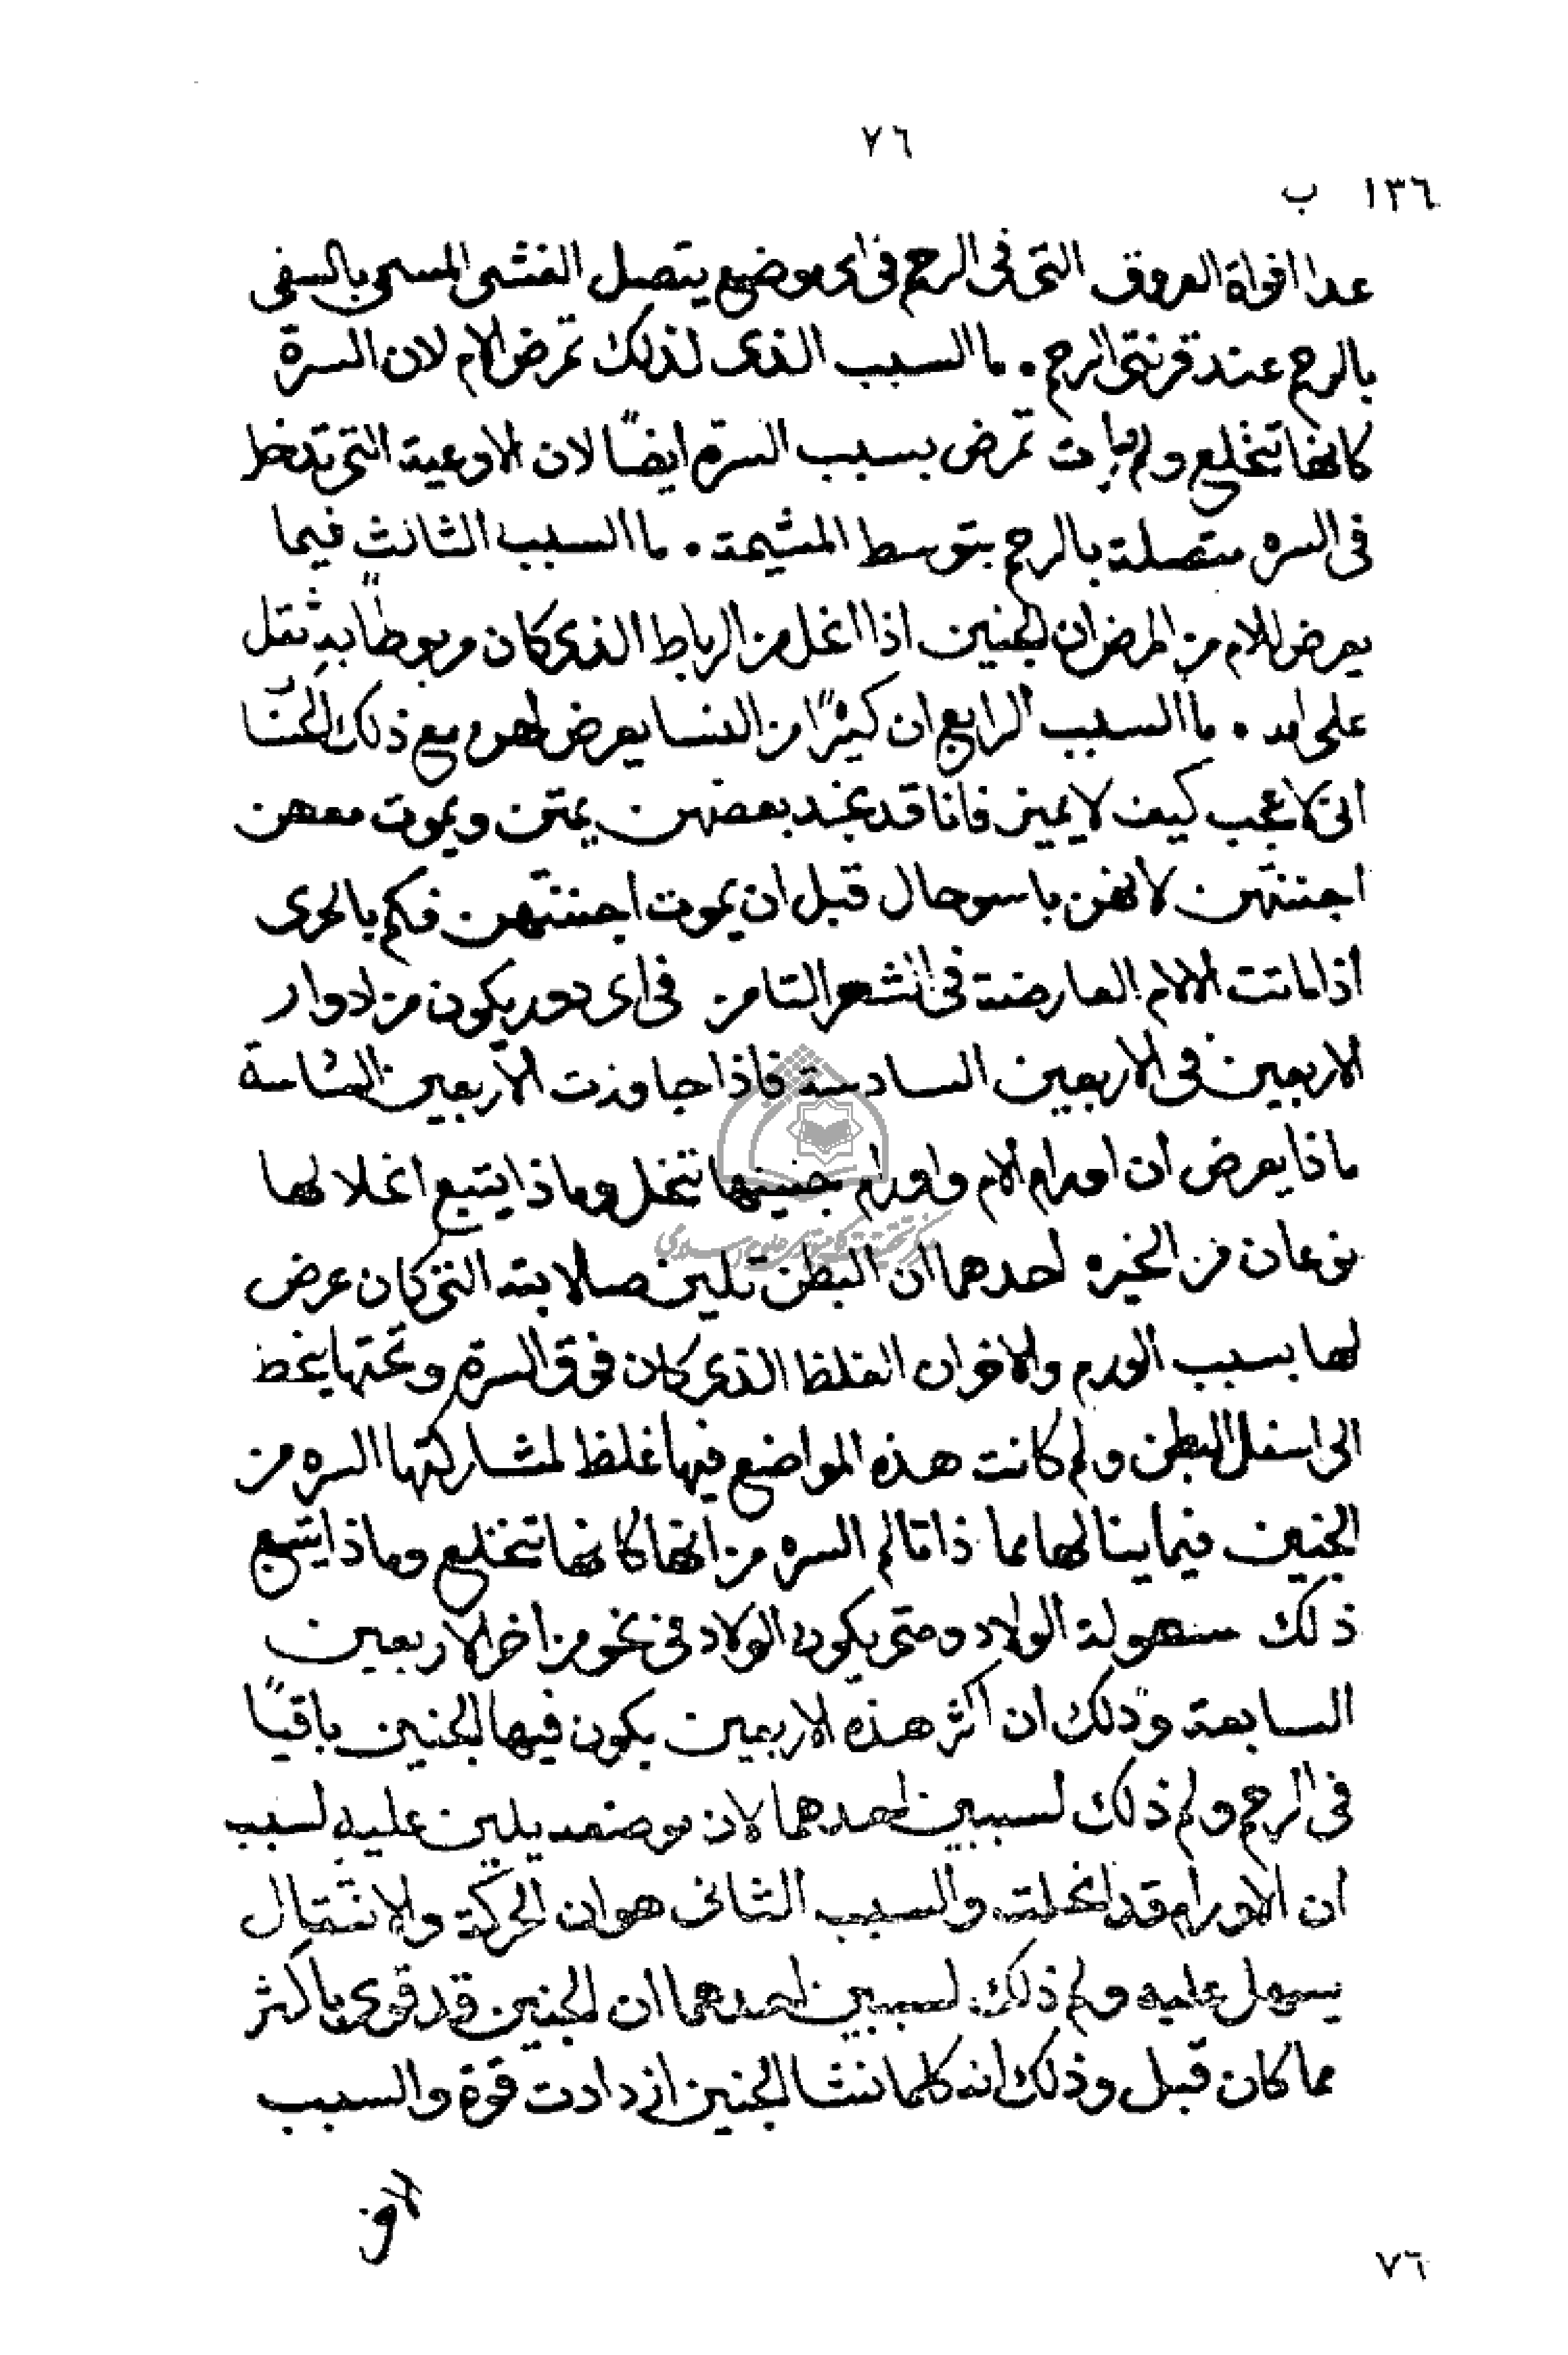 ٧٦
١٣٦ ب
عدا افواة العروق التى فى الرحم فى اى موضع يتصل الغشى المسمى بالسفى
بالرحم عند قرنتى الرحم . ما السبب الذى لذلك تمرض الام لان السرة
كانها تنخلع ولم صارت تمرض بسبب السرة ايضًا لان الاوعية التى تدخل
فى السره متصلة بالرحم بتوسط المشيمة . ما السبب الثالث فيما
يعرض للام من المرض ان الجنين اذا انحل من الرباط الذى كان مربوطًا به ثقل
على امه . ما السبب الرابع ان كثيرًا من النسا يعرض لهن مع ذلك
انى لاعجب كيف لا يميز فانا قد نجد بعضهن يمتن ويموت معهن
اجنتهن لانهن باسو حال قبل ان يموت اجنتهن فكم بالحرى
اذا ماتت الالام العارضة فى الشهر الثامن فى اى دور يكون من ادوار
الاربعين فى الاربعين السادسة فاذا جاوزت الاربعين السادسة
ماذا يعرض ان اورام الام واورام جنينها تنحل وماذا يتبع انحلالها
نوعان من الخيره احدهما ان البطن تلين صلابته التى كان عرض
لها بسبب الورم والاخر ان الغلظ الذى كان فوق السرة وتحتها ينحط
الى اسفل البطن ولم كانت هذه المواضع فيها غلظ لمشاركتها السره من
الجنين فيما ينالها مما ذا تالم السره من انها كانها تنخلع وماذا يتبع
ذلك سهولة الولاد ومتى يكون الولاد فى نحو من اخر الاربعين
السابعة وذلك ان اكثر هذه الاربعين يكون فيها الجنين باقيًا
فى الرحم ولم ذلك لسببين احدهما لان موضعه يلين عليه لسبب
ان الاورام قد انحلت والسبب الثانى هو ان الحركة والانتقال
يسهل عليه ولم ذلك لسببين احدهما ان الجنين قد قوى باكثر
مما كان قبل وذلك انه كلما نشا الجنين ازدادت قوة والسبب
٧٦